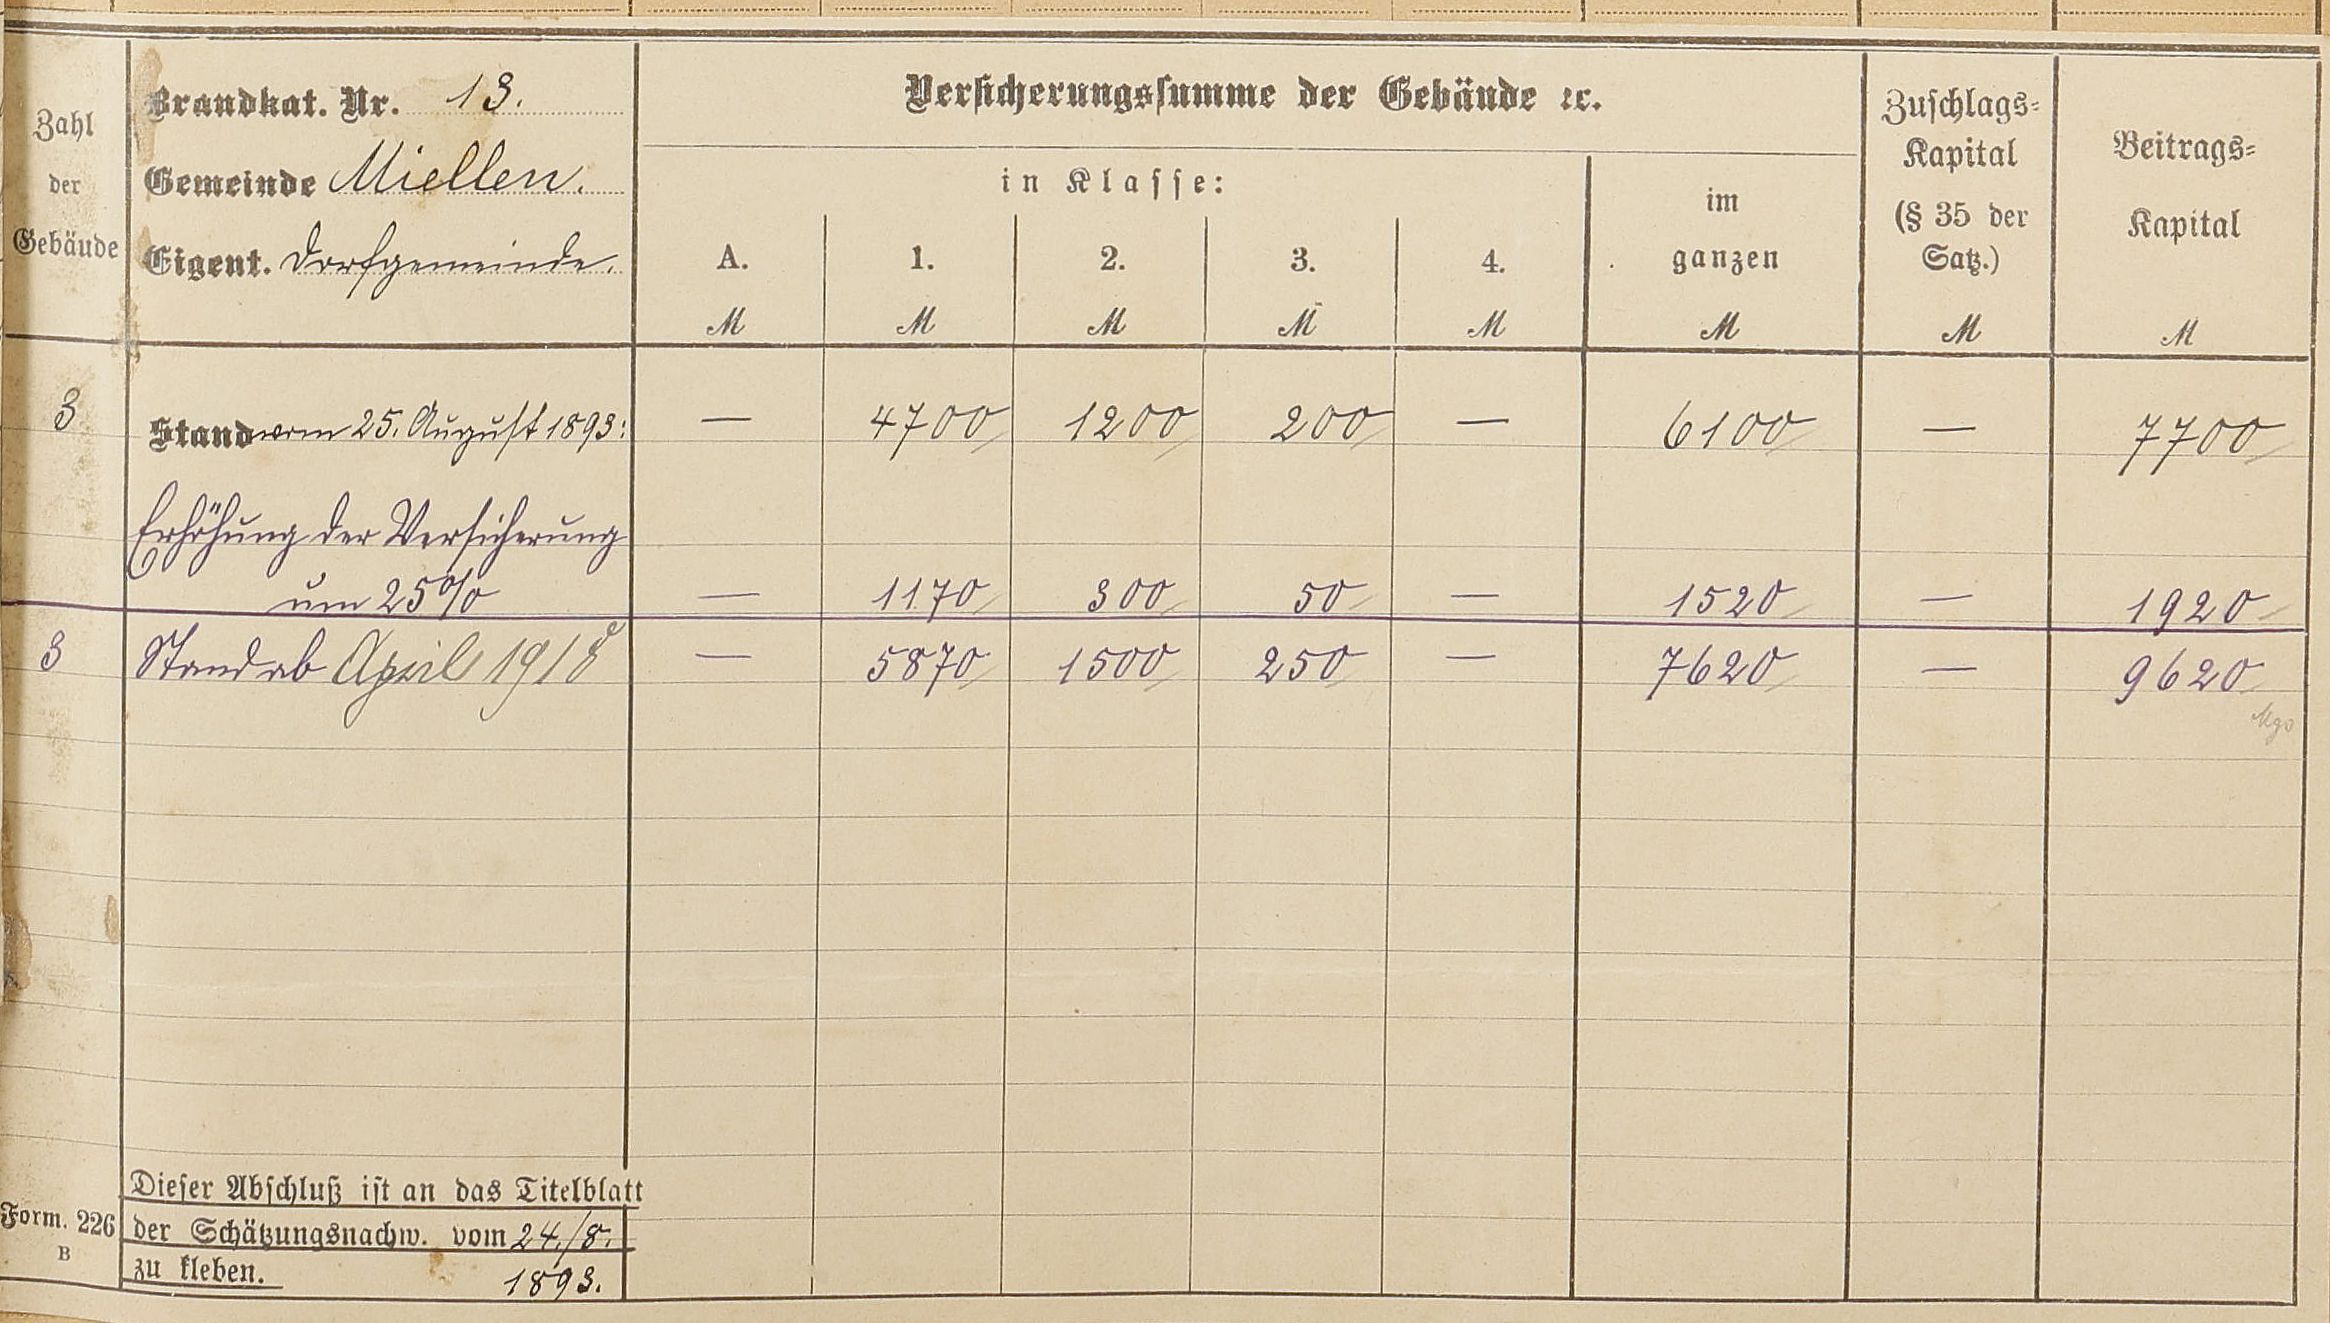 Zahl
der
Gebäude
Brandkat. Nr. 13.
Gemeinde Miellen.
Eigent. Dorfgemeinde.
Versicherungssumme der Gebäude ꝛc.
in Klasse:
A. 1. 2. 3. 4.
im
ganzen
Zuschlags-
Kapital
(§ 35 der
Satz.)
Beitrags-
Kapital
M M M M M M M M
3 Stand vom 25. August 1893: — 4700 1200 200 — 6100 — 7700
Erhöhung der Versicherung
um 25% — 1170 300 50 — 1520 — 1920
3 Stand ab April 1918 — 5870 1500 250 — 7620 — 9620
Form. 226
B
Dieser Abschluß ist an das Titelblatt
der Schätzungsnachw. vom 24./8.
zu kleben. 1893.